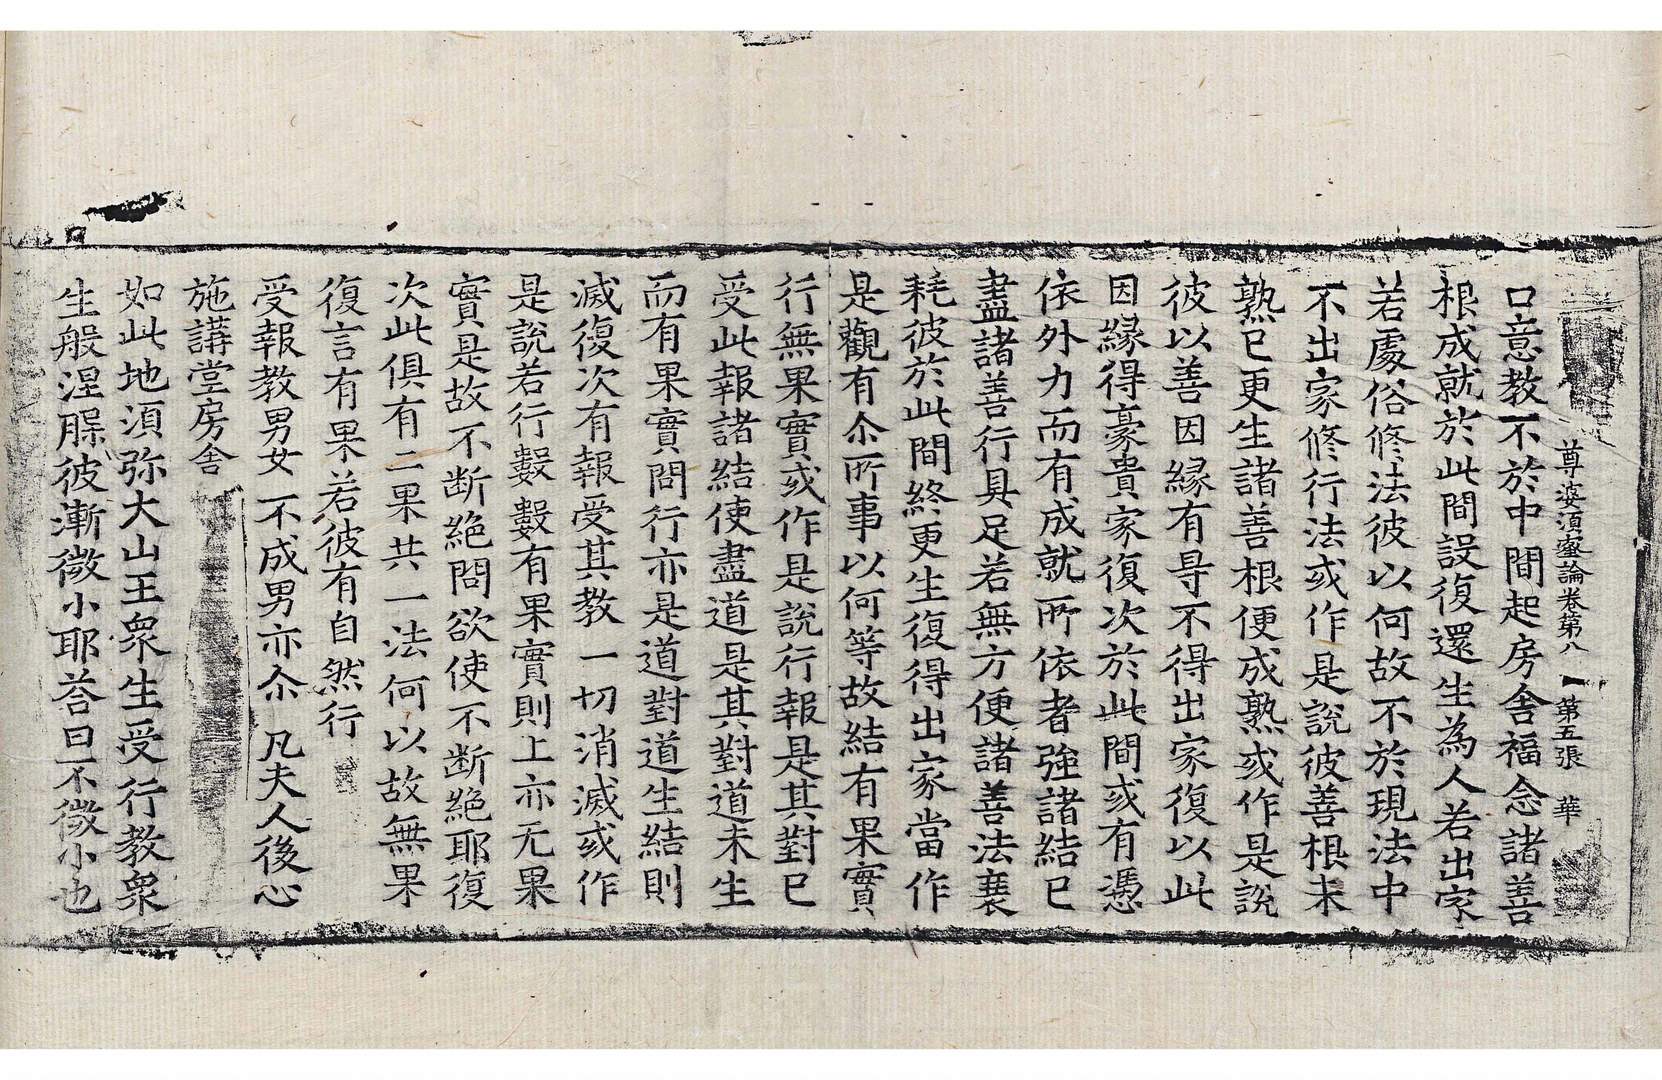 尊婆須蜜論卷第八 第五張 華
口意教不於中間起房舍福念諸善
根成就於此間設復還生為人若出家
若處俗修法彼以何故不於現法中
不出家修行法或作是說彼善根未
熟已更生諸善根便成熟或作是說
彼以善因緣有㝵不得出家復以此
因緣得豪貴家復次於此間或有憑
依外力而有成就所依者強諸結已
盡諸善行具足若無方便諸善法衰
耗彼於此間終更生復得出家當作
是觀有尒所事以何等故結有果實
行無果實或作是說行報是其對已
受此報諸結使盡道是其對道未生
而有果實問行亦是道對道生結則
滅復次有報受其教一切消滅或作
是說若行數數有果實則上亦无果
實是故不斷絕問欲使不斷絕耶復
次此俱有二果共一法何以故無果
復言有果若彼有自然行
受報教男女不成男亦尒凡夫人後心
施講堂房舍
如此地須弥大山王眾生受行教眾
生般涅槃彼漸微小耶荅曰不微小也